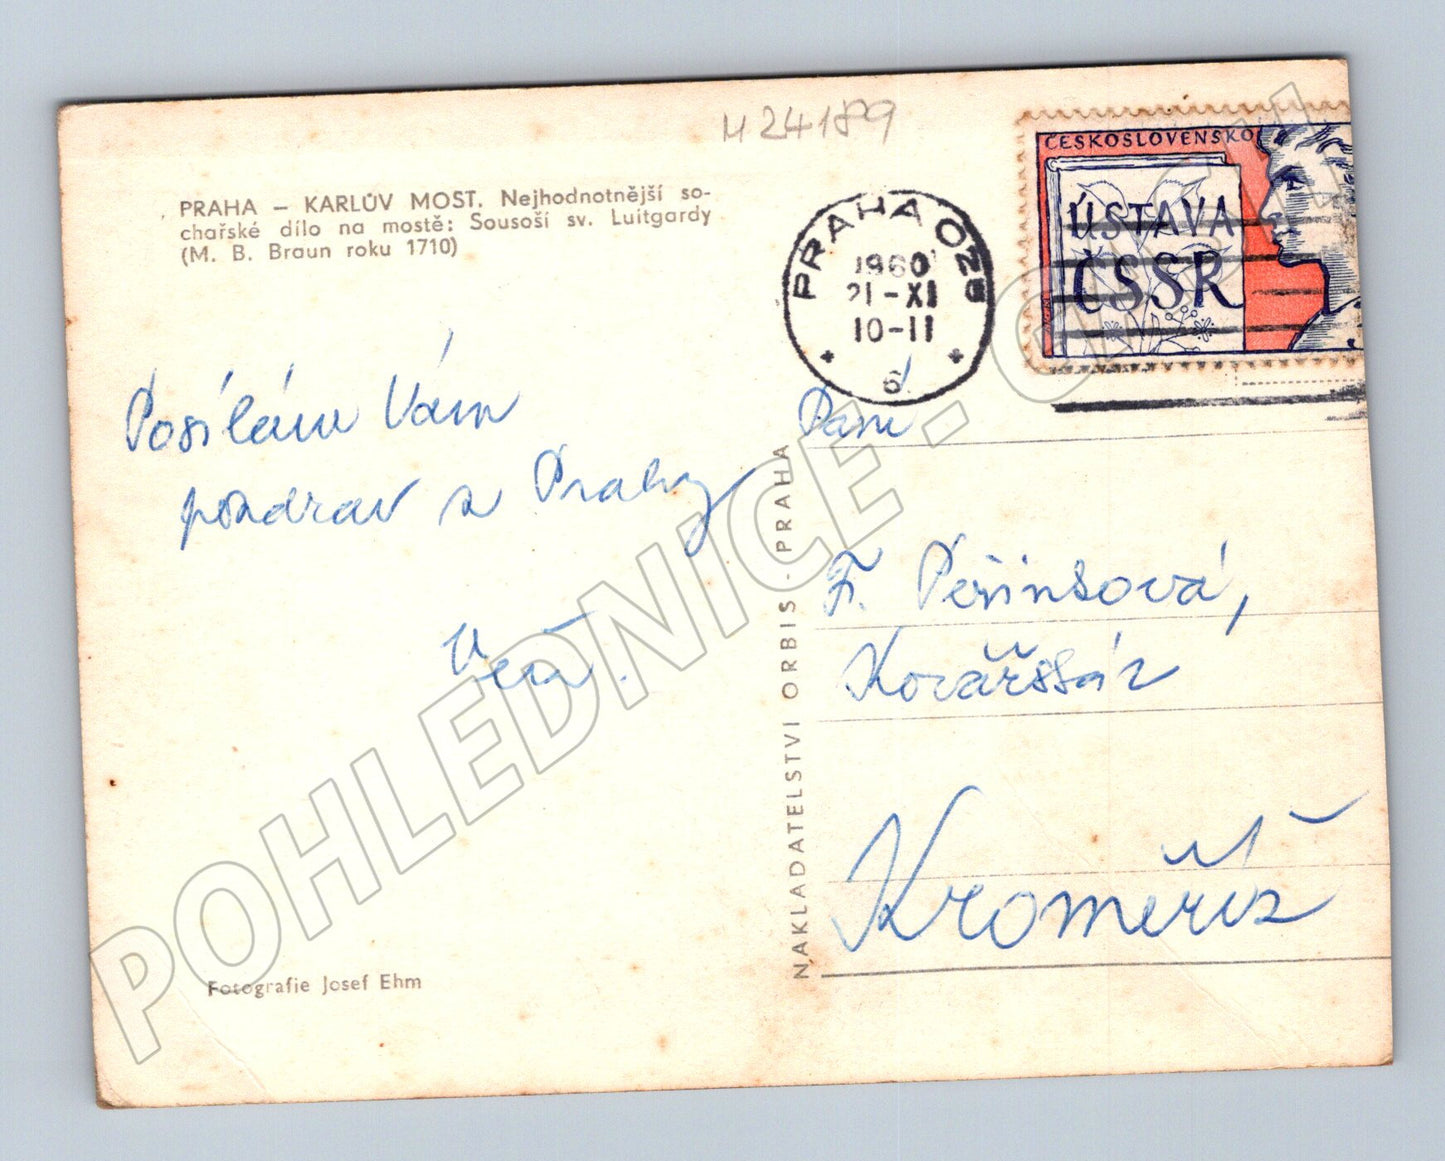 H 24189
PRAHA – KARLŮV MOST. Nejhodnotnější so-
chařské dílo na mostě: Sousoší sv. Luitgardy
(M. B. Braun roku 1710)
Posílám Vám
pozdrav z Prahy
Věra.
Fotografie Josef Ehm
NAKLADATELSTVÍ ORBIS - PRAHA
PRAHA 025
1960
21-XI
10-11
6
ČESKOSLOVENSKO
ÚSTAVA
ČSSR
Paní
F. Peřinková,
Kovářská 2
Kroměříž